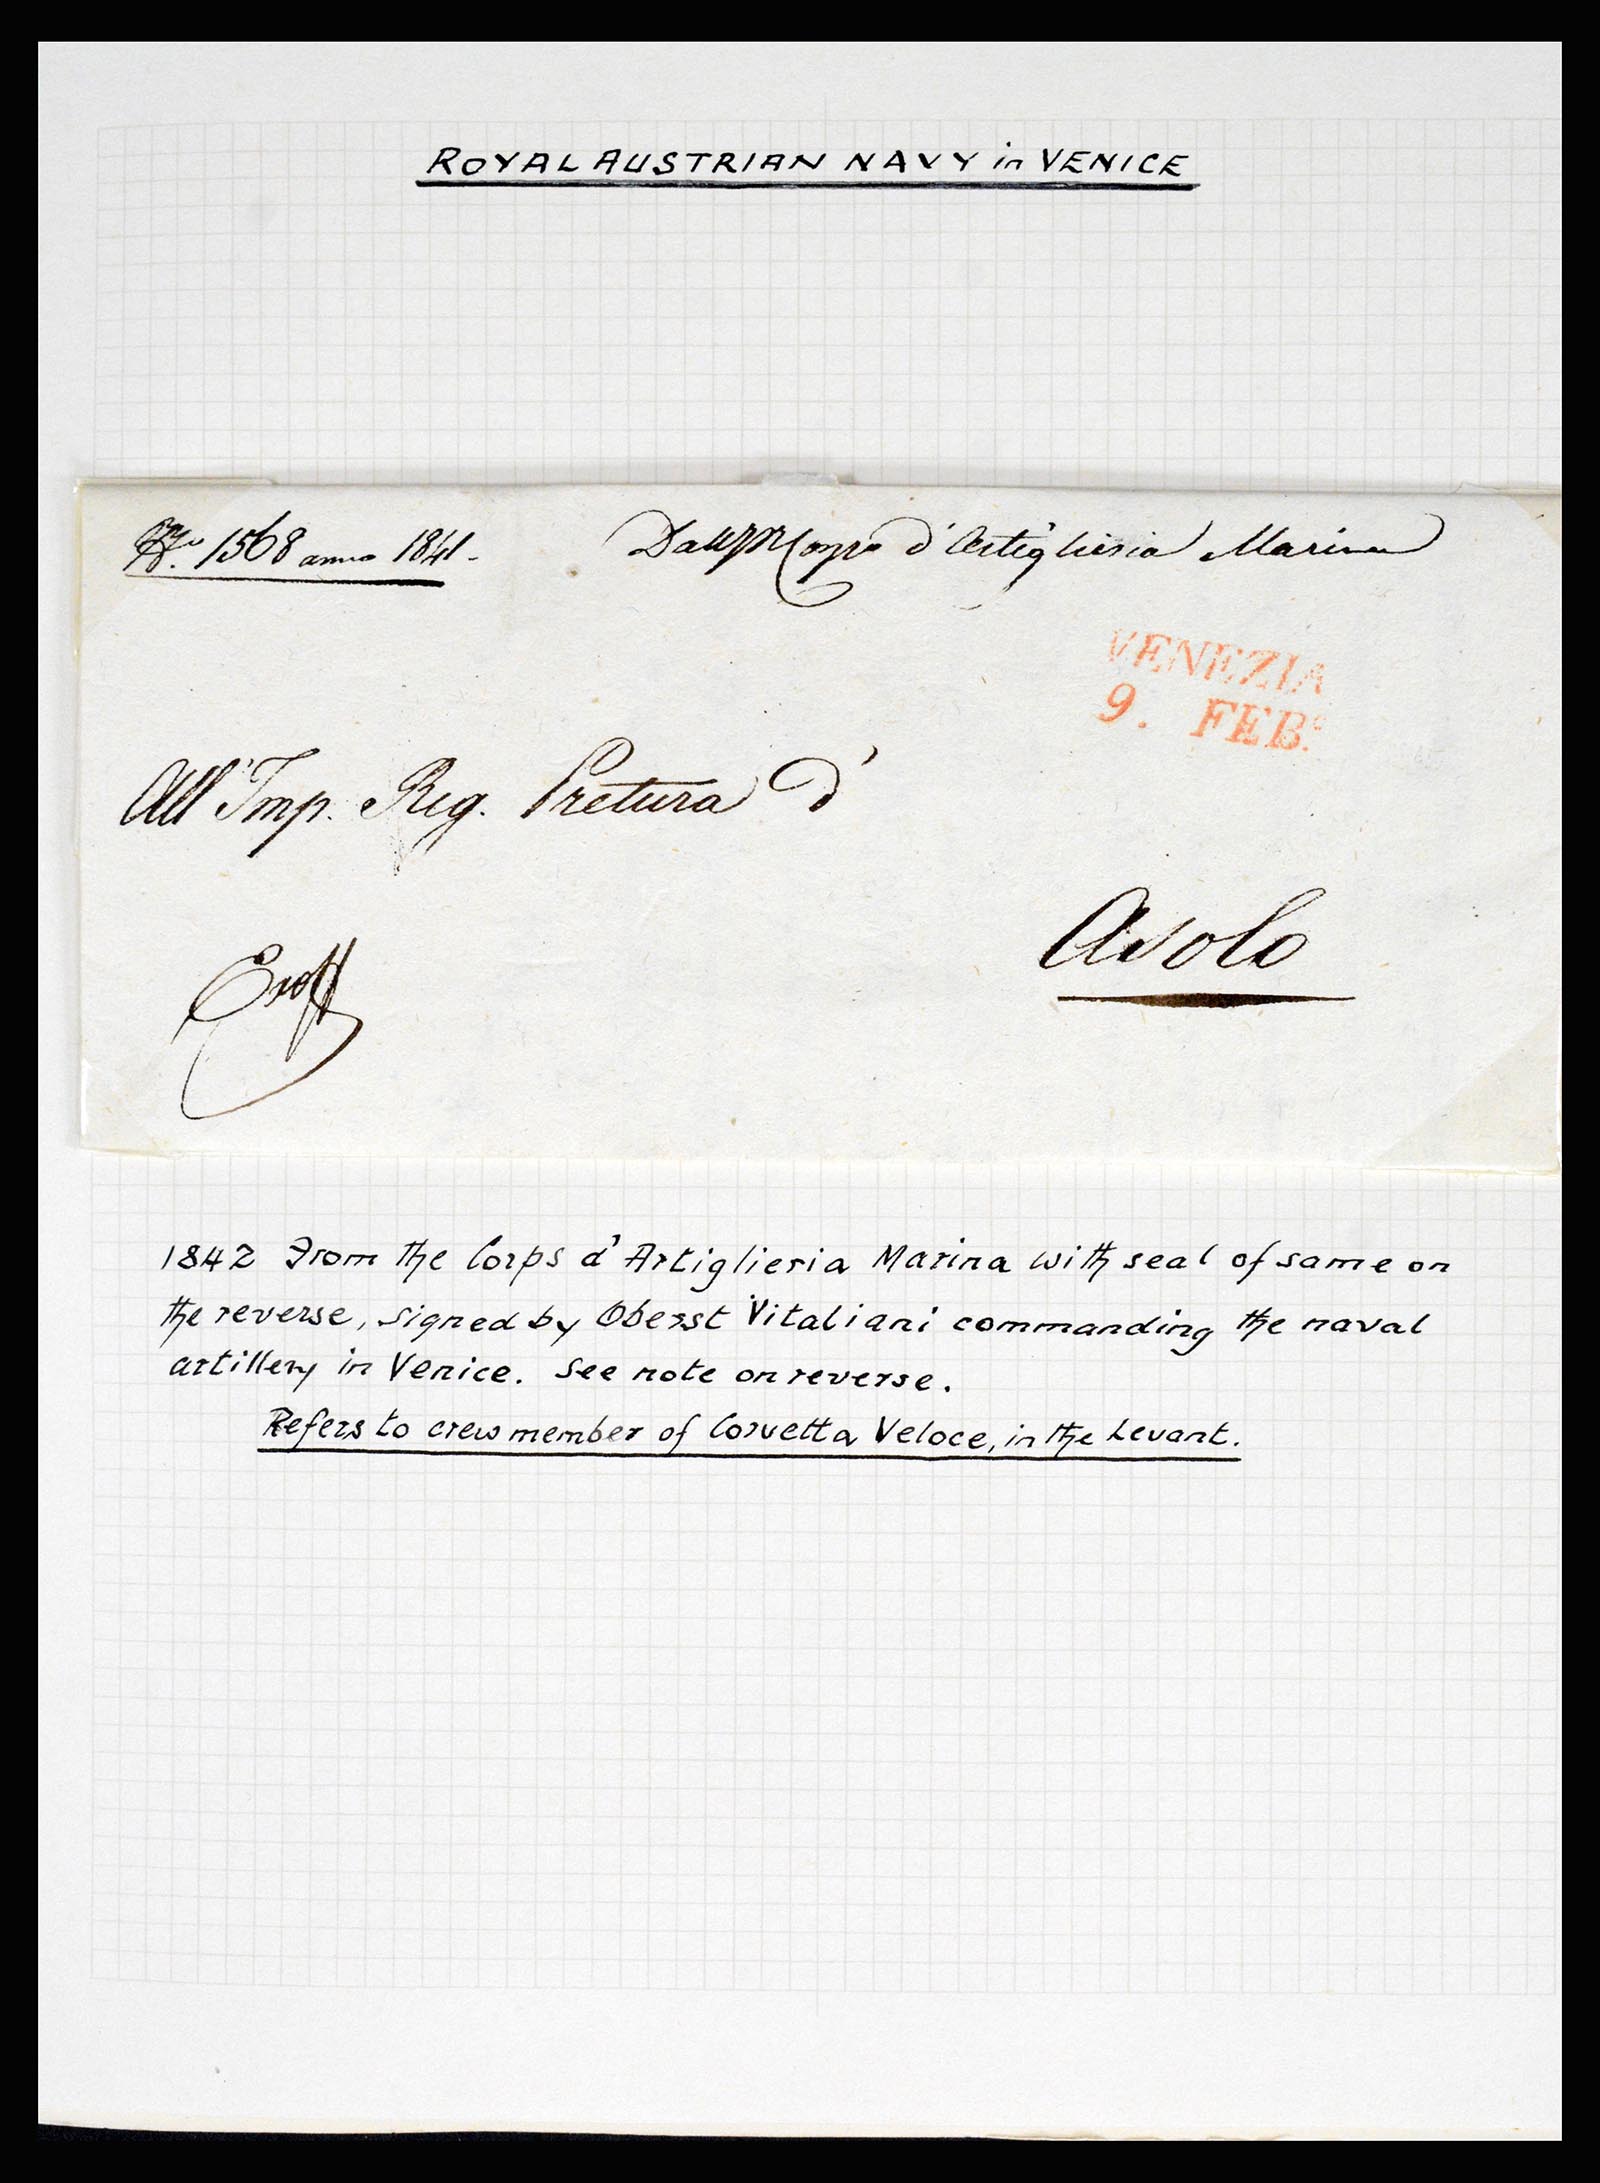 ROYAL AUSTRIAN NAVY in VENICE
No. 1568 anno 1841.
Dall'I.R. Corpo d'Artiglieria Marina
VENEZIA
9. FEB.o
All' Imp. Reg. Pretura d'
Asolo
Exoff
1842 From the Corps d'Artiglieria Marina with seal of same on
the reverse, signed by Oberst Vitaliani commanding the naval
artillery in Venice. See note on reverse.
Refers to crew member of Corvetta Veloce, in the Levant.